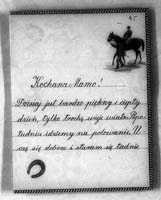 45
Kochana Mamo!
Dzisiaj jest bardzo piękny i ciepły
dzień, tylko trochę wieje wiatr. Popo-
łudniu idziemy na polowanie. U-
czę się dobrze i staram się ładnie